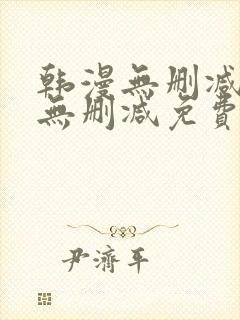 韩漫無删减
無删减免費
尹濟平